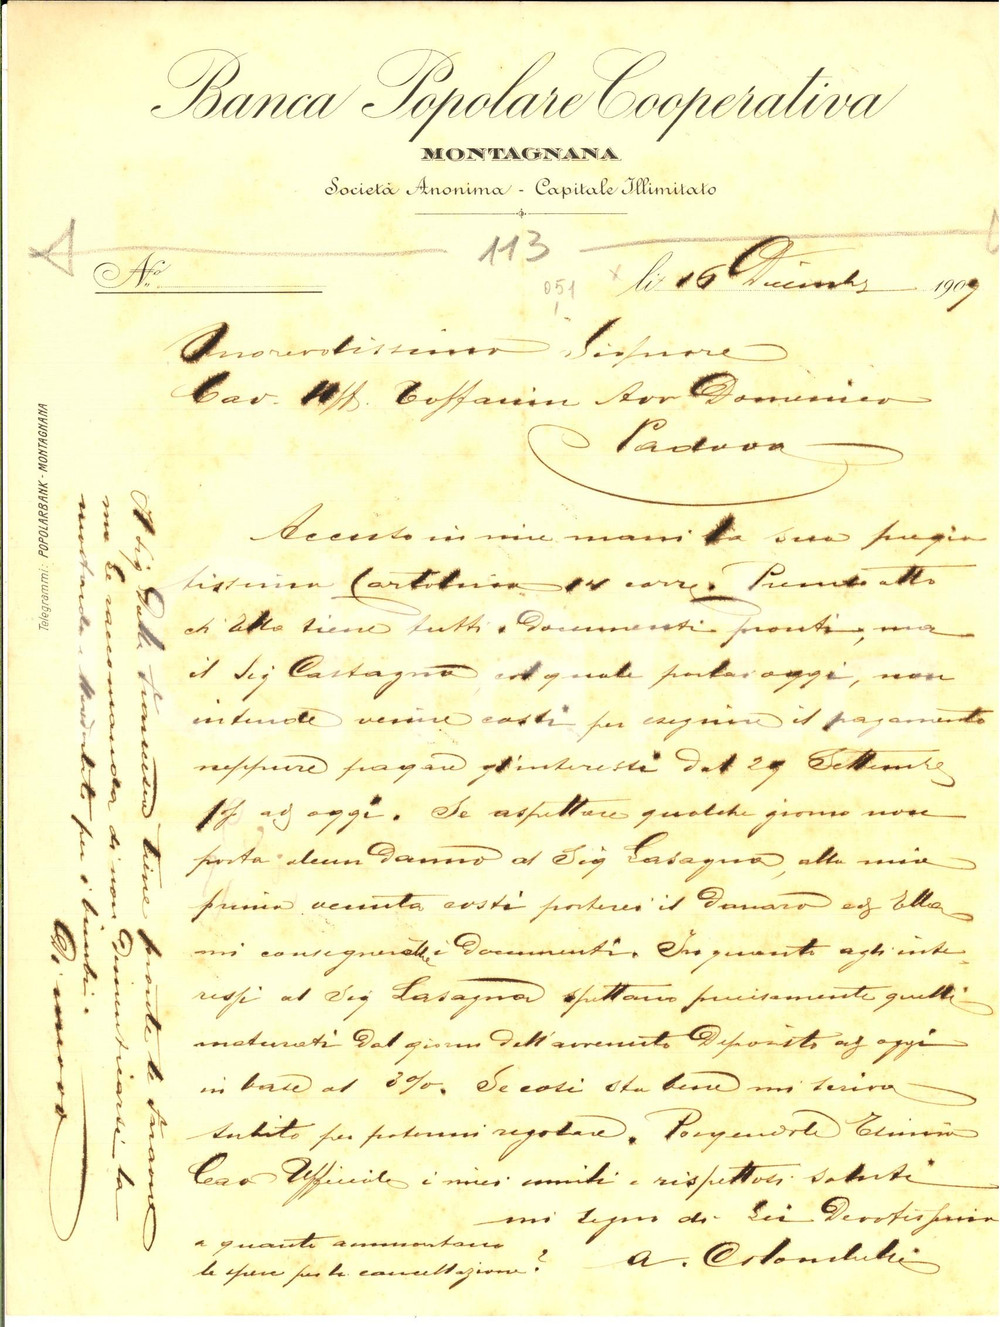 Banca Popolare Cooperativa
MONTAGNANA
Società Anonima - Capitale Illimitato
113
N.º
051
li 16 Dicembre 1909
Onorevolissimo Signore
Cav. Uff. Toffanin Avv Domenico
Padova
Accuso in mie mani la sua pregia
tissima Cartolina 14 corr. Prendo atto
ch'Ella tiene tutti i documenti pronti, ma
il Sig Castagna, col quale parlai oggi, non
intende venire costì per eseguire il pagamento
neppure pagare gl'interessi dal 29 Settembre
ad oggi. Se aspettare qualche giorno non
porta alcun danno al Sig Lasagna, alla mia
prima venuta costì porterei il danaro ed Ella
mi consegnerebbe i documenti. In quanto agli inte-
ressi al Sig Lasagna spettano precisamente quelli
maturati dal giorno dell'avvenuto Deposito ad oggi
in base al 3%. Se così sta bene mi scriva
subito per potermi regolare. Porgendole Esimio
Cav Ufficiale i miei umili e rispettosi saluti
mi segno di Lei Devotissimo
A. Colombichi
a quanto ammontano
le spese per la cancellazione?
Telegrammi: POPOLARBANK - MONTAGNANA
Il Sig Dalla tiene pronte le
ma Le raccomanda di non dimenticarsi la
per i
Di nuovo